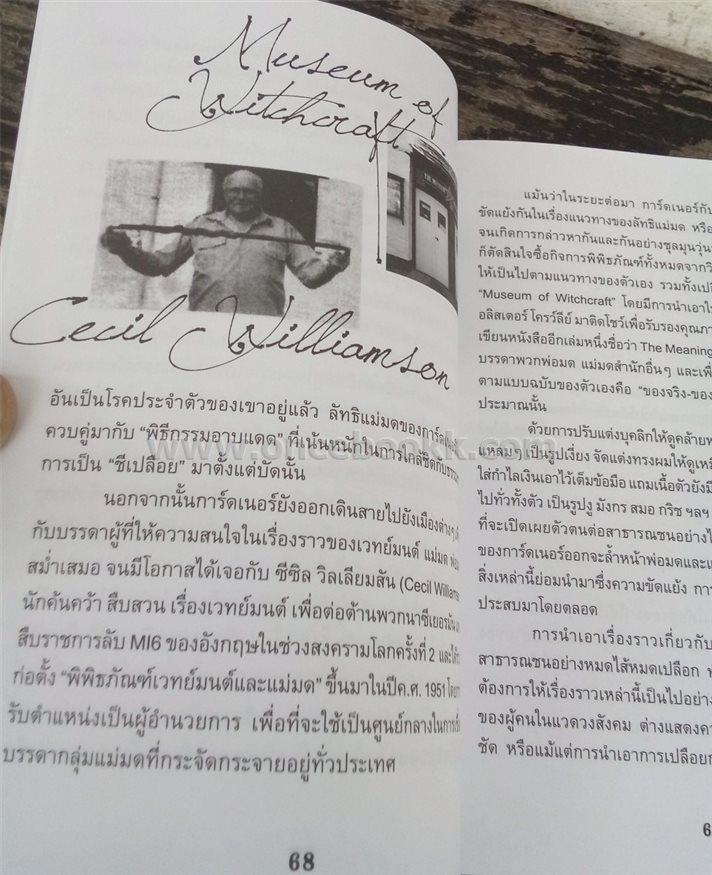 Museum of
Witchcraft
THE MUSEUM
Cecil Williamson
อันเป็นโรคประจำตัวของเขาอยู่แล้ว ลัทธิแม่มดของการ์ดเนอร์
ควบคู่มากับ “พิธีกรรมอาบแดด” ที่เน้นหนักในการใกล้ชิดกับ
การเป็น “ชีเปลือย” มาตั้งแต่บัดนั้น
นอกจากนั้นการ์ดเนอร์ยังออกเดินสายไปยังเมืองต่างๆ
กับบรรดาผู้ที่ให้ความสนใจในเรื่องราวของเวทย์มนต์ แม่มด
สม่ำเสมอ จนมีโอกาสได้เจอกับ ซีซิล วิลเลียมสัน (Cecil Williamso
นักค้นคว้า สืบสวน เรื่องเวทย์มนต์ เพื่อต่อต้านพวกนาซีเยอรมัน
สืบราชการลับ MI6 ของอังกฤษในช่วงสงครามโลกครั้งที่ 2 และได้
ก่อตั้ง “พิพิธภัณฑ์เวทย์มนต์และแม่มด” ขึ้นมาในปีค.ศ. 1951 โดย
รับตำแหน่งเป็นผู้อำนวยการ เพื่อที่จะใช้เป็นศูนย์กลางในการ
บรรดากลุ่มแม่มดที่กระจัดกระจายอยู่ทั่วประเทศ
68
แม้นว่าในระยะต่อมา การ์ดเนอร์กับ
ขัดแย้งกันในเรื่องแนวทางของลัทธิแม่มด หรือ
จนเกิดการกล่าวหากันและกันอย่างชุลมุนวุ่น
ก็ตัดสินใจซื้อกิจการพิพิธภัณฑ์ทั้งหมดจากวิ
ให้เป็นไปตามแนวทางของตัวเอง รวมทั้งเปลี่
“Museum of Witchcraft” โดยมีการนำเอาใ
อลิสเตอร์ โครว์ลีย์ มาติดโชว์เพื่อรับรองคุณภา
เขียนหนังสืออีกเล่มหนึ่งชื่อว่า The Meaning
บรรดาพวกพ่อมด แม่มดสำนักอื่นๆ และเพื่
ตามแบบฉบับของตัวเองคือ “ของจริง-ของ
ประมาณนั้น
ด้วยการปรับแต่งบุคลิกให้ดูคล้ายพ
แหลมๆ เป็นรูปเงี่ยง จัดแต่งทรงผมให้ดูเหมื
ใส่กำไลเงินเอาไว้เต็มข้อมือ แถมเนื้อตัวยังมี
ไปทั่วทั้งตัว เป็นรูปงู มังกร สมอ กริช ฯลฯ
ที่จะเปิดเผยตัวตนต่อสาธารณชนอย่างไ
ของการ์ดเนอร์ออกจะล้ำหน้าพ่อมดและแ
สิ่งเหล่านี้ย่อมนำมาซึ่งความขัดแย้ง การ
ประสบมาโดยตลอด
การนำเอาเรื่องราวเกี่ยวกับ
สาธารณชนอย่างหมดไส้หมดเปลือก
ต้องการให้เรื่องราวเหล่านี้เป็นไปอย่าง
ของผู้คนในแวดวงสังคม ต่างแสดงคว
ชัด หรือแม้แต่การนำเอาการเปลือยก
6